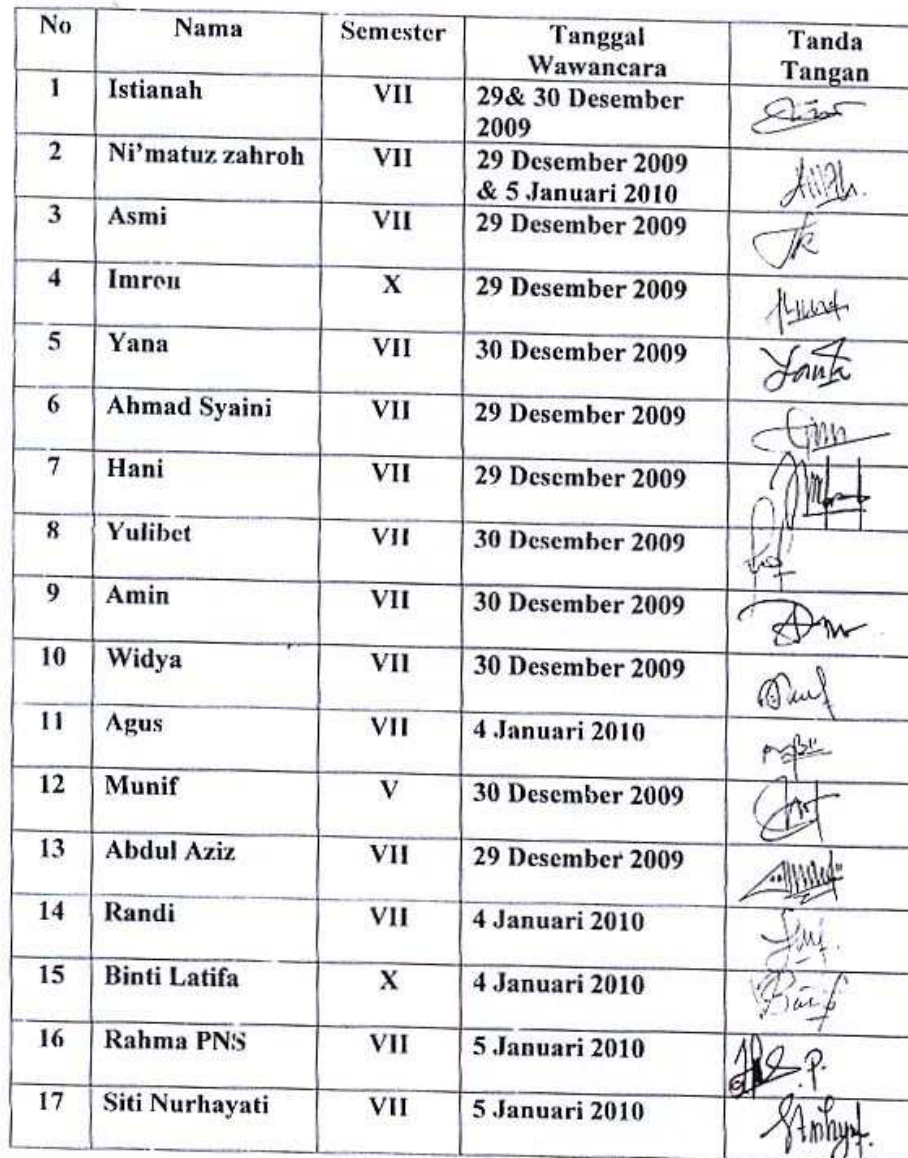 No Nama Semester Tanggal Wawancara Tanda Tangan
1 Istianah VII 29& 30 Desember 2009
2 Ni'matuz zahroh VII 29 Desember 2009 & 5 Januari 2010
3 Asmi VII 29 Desember 2009
4 Imron X 29 Desember 2009
5 Yana VII 30 Desember 2009
6 Ahmad Syaini VII 29 Desember 2009
7 Hani VII 29 Desember 2009
8 Yulibet VII 30 Desember 2009
9 Amin VII 30 Desember 2009
10 Widya VII 30 Desember 2009
11 Agus VII 4 Januari 2010
12 Munif V 30 Desember 2009
13 Abdul Aziz VII 29 Desember 2009
14 Randi VII 4 Januari 2010
15 Binti Latifa X 4 Januari 2010
16 Rahma PNS VII 5 Januari 2010
17 Siti Nurhayati VII 5 Januari 2010